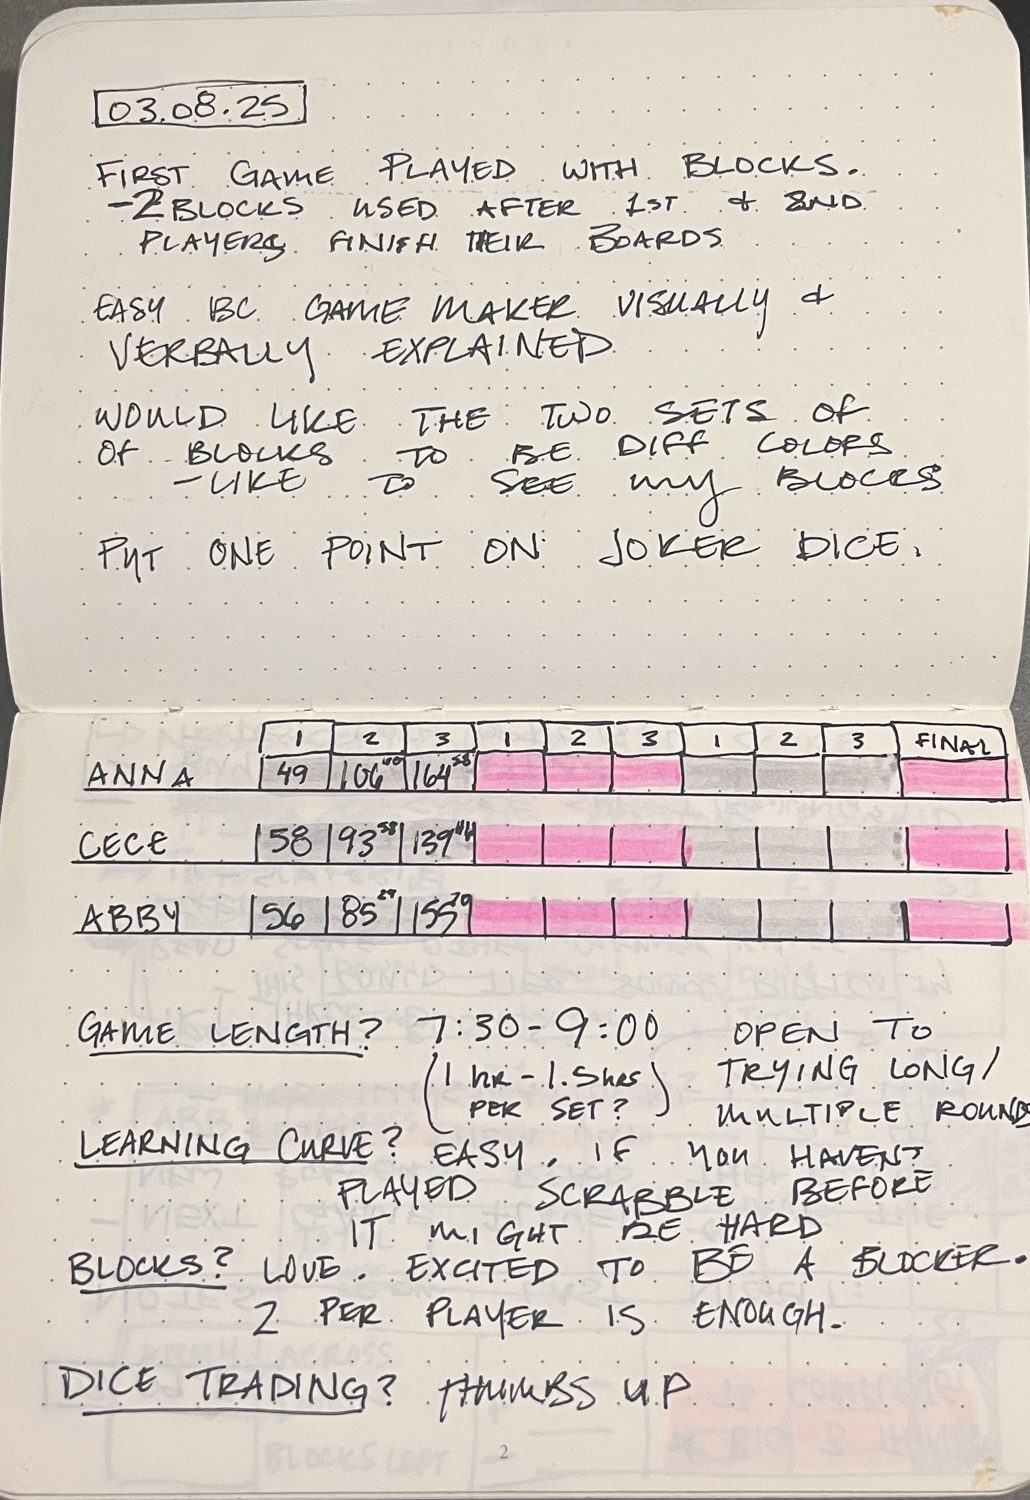 03.08.25
FIRST GAME PLAYED WITH BLOCKS.
-2 BLOCKS USED AFTER 1ST & 2ND
PLAYERS FINISH THEIR BOARDS
EASY BC GAME MAKER VISUALLY &
VERBALLY EXPLAINED
WOULD LIKE THE TWO SETS OF
OF BLOCKS TO BE DIFF COLORS
-LIKE TO SEE MY BLOCKS
PUT ONE POINT ON JOKER DICE.
1 2 3 1 2 3 1 2 3 FINAL
ANNA 49 106 164 58
CECE 58 93 139
ABBY 56 85 29 155 70
GAME LENGTH? 7:30-9:00 OPEN TO
(1 hr - 1.5hrs TRYING LONG/
PER SET?) MULTIPLE ROUNDS
LEARNING CURVE? EASY. IF YOU HAVEN'T
PLAYED SCRABBLE BEFORE
IT MIGHT BE HARD
BLOCKS? LOVE. EXCITED TO BE A BLOCKER.
2 PER PLAYER IS ENOUGH.
DICE TRADING? THUMBS UP
2